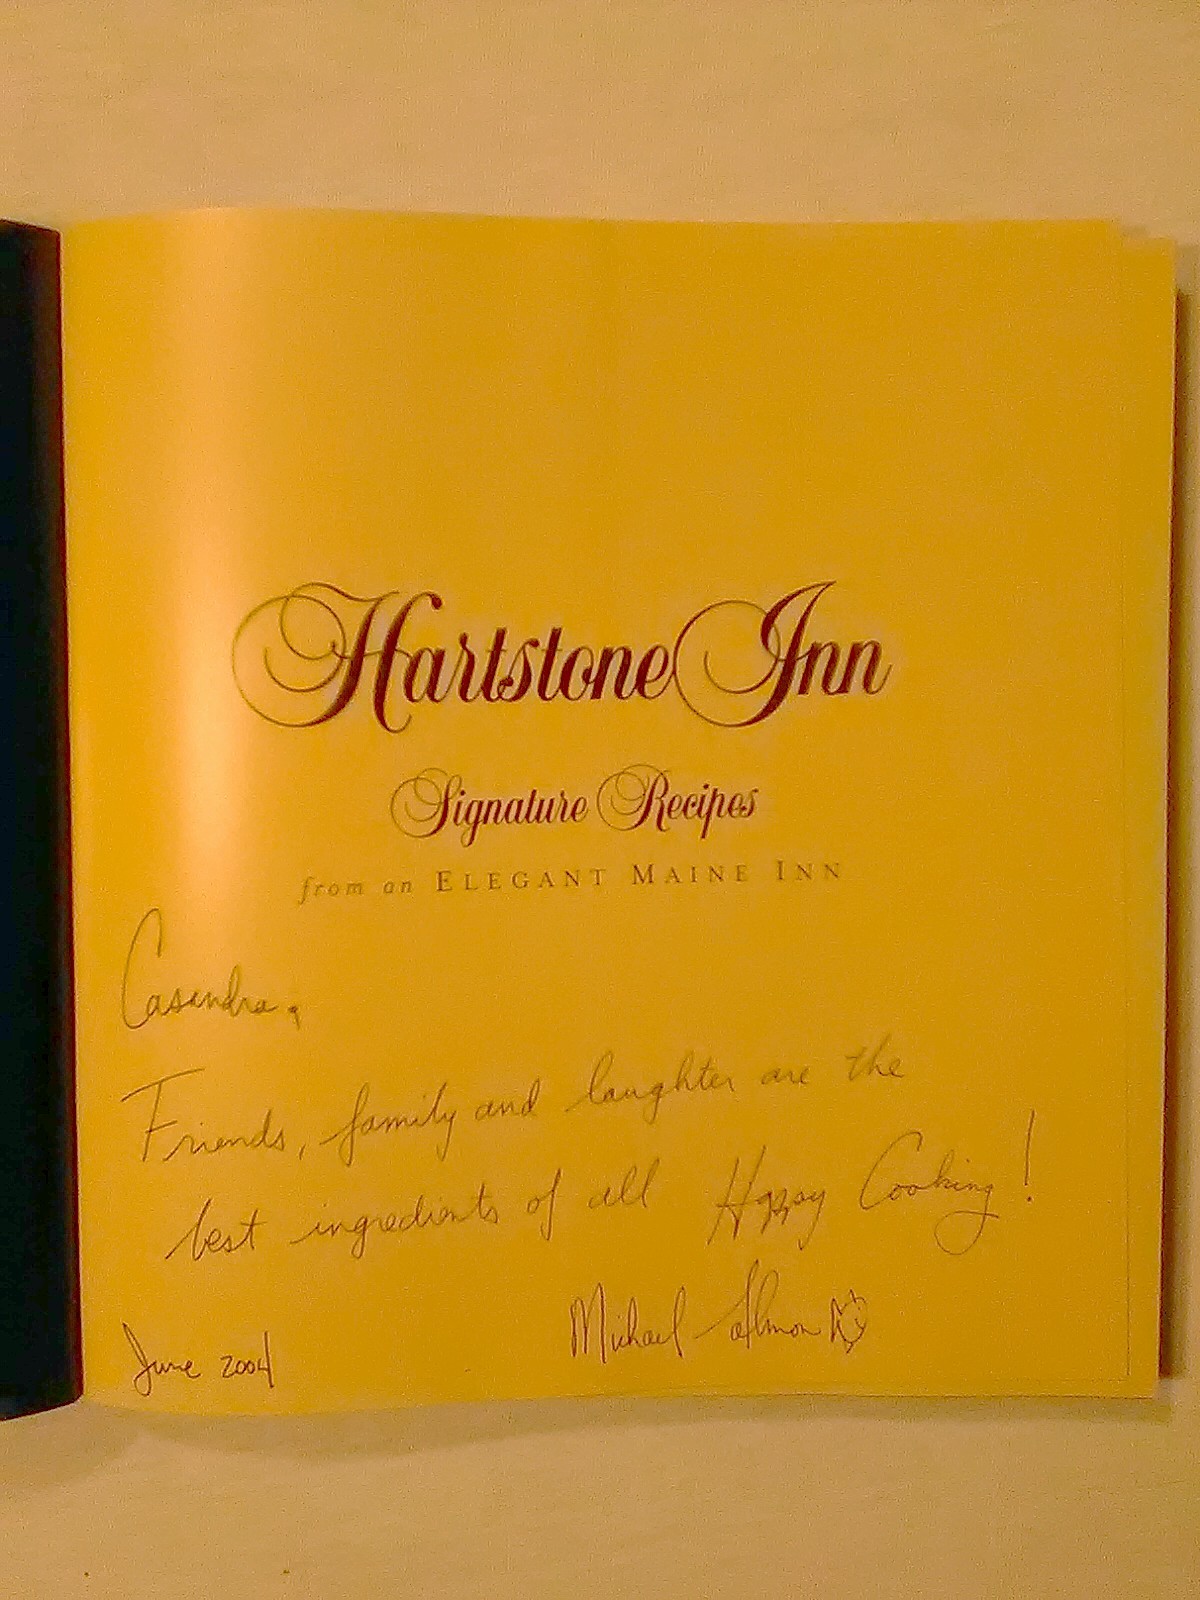 Hartstone Inn
Signature Recipes
from an ELEGANT MAINE INN
Casandra,
Friends, family and laughter are the
best ingredients of all Happy Cooking!
Michael Salmon
June 2004